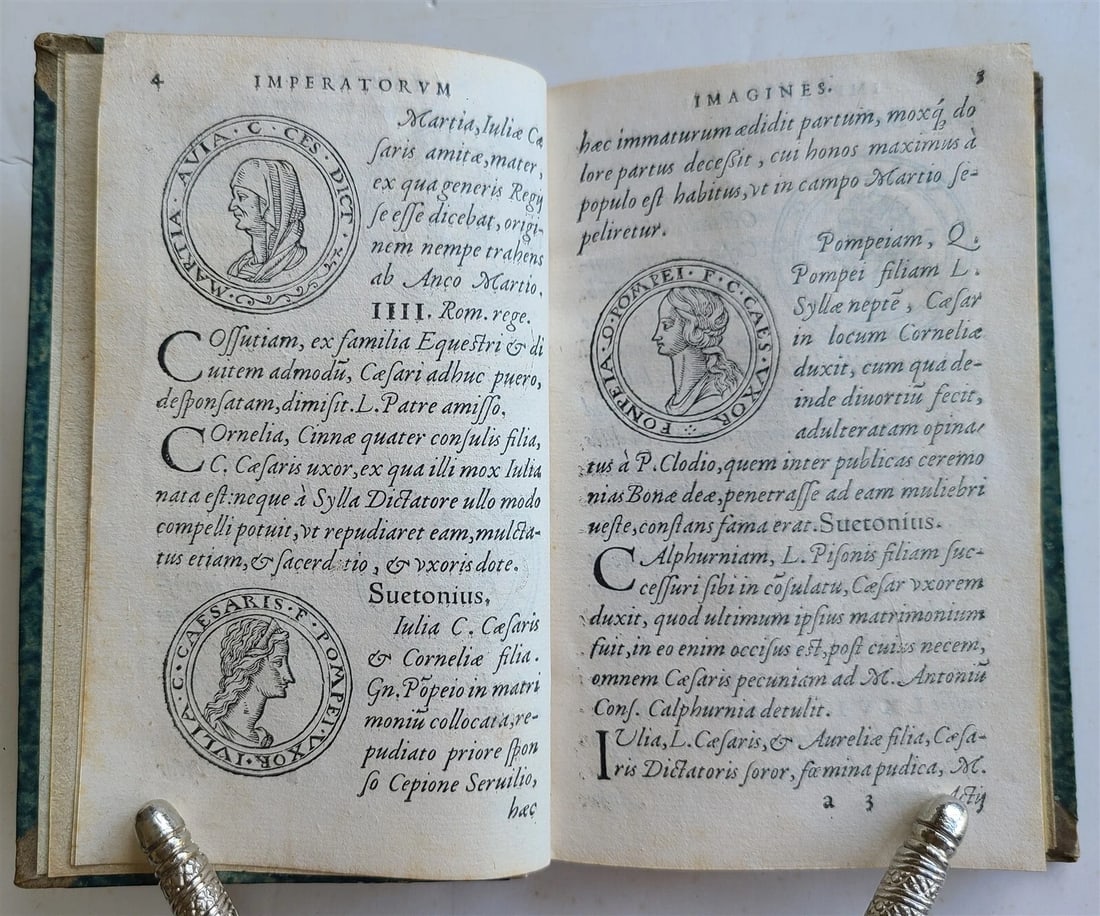 4 IMPERATORVM
MARTIA · AVIA · C · CES · DICT ·
Martia, Iuliæ Cæ
ſaris amitæ, mater,
ex qua generis Regij
ſe eſſe dicebat, origi-
nem nempe trahens
ab Anco Martio.
IIII. Rom. rege.
COſſutiam, ex familia Equeſtri & di
uitem admodũ, Cæſari adhuc puero,
deſponſatam, dimiſit. L. Patre amiſſo.
COrnelia, Cinnæ quater conſulis filia,
C. Cæſaris uxor, ex qua illi mox Iulia
nata eſt: neque à Sylla Dictatore ullo modo
compelli potuit, vt repudiaret eam, mulcta-
tus etiam, & ſacerd tio, & vxoris dote.
Suetonius.
IVLIA · C · CAESARIS · F · POMPEI · VXOR
Iulia C. Cæſaris
& Corneliæ filia.
Gn. Põpeio in matri
moniũ collocata, re-
pudiato priore ſpon
ſo Cepione Seruilio,
hæc
IMAGINES. 3
hæc immaturum ædidit partum, moxq́; do
lore partus deceſſit, cui honos maximus à
populo eſt habitus, vt in campo Martio ſe-
peliretur.
FONPEIA · O · POMPEI · F · C · CAES · VXOR
Pompeiam, Q.
Pompei filiam L.
Syllæ neptẽ, Cæſar
in locum Corneliæ
duxit, cum qua de-
inde diuortiũ fecit,
adulteratam opina
tus à P. Clodio, quem inter publicas ceremo
nias Bonæ deæ, penetraſſe ad eam muliebri
ueſte, conſtans fama erat. Suetonius.
CAlphurniam, L. Piſonis filiam ſuc-
ceſſuri ſibi in cõſulatu, Cæſar vxorem
duxit, quod ultimum ipſius matrimonium
fuit, in eo enim occiſus eſt, poſt cuius necem,
omnem Cæſaris pecuniam ad M. Antoniũ
Conſ. Calphurnia detulit.
IVlia, L. Cæſaris, & Aureliæ filia, Cæſa-
ris Dictatoris ſoror, fœmina pudica, M.
a 3 Actij